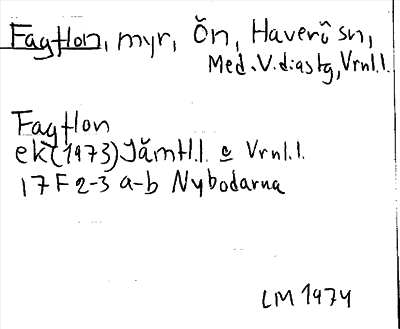 Fagtlon, myr, Ön, Haverö sn,
Med.V.distg, Vrnl.l.
Fagtlon
ek (1973) Jämtl.l. o Vrnl.l.
17F 2-3 a-b Nybodarna
LM 1974